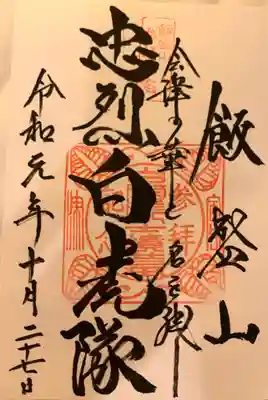 飯盛山
会津の華と名を残し
忠烈白虎隊
令和元年十月二十七日